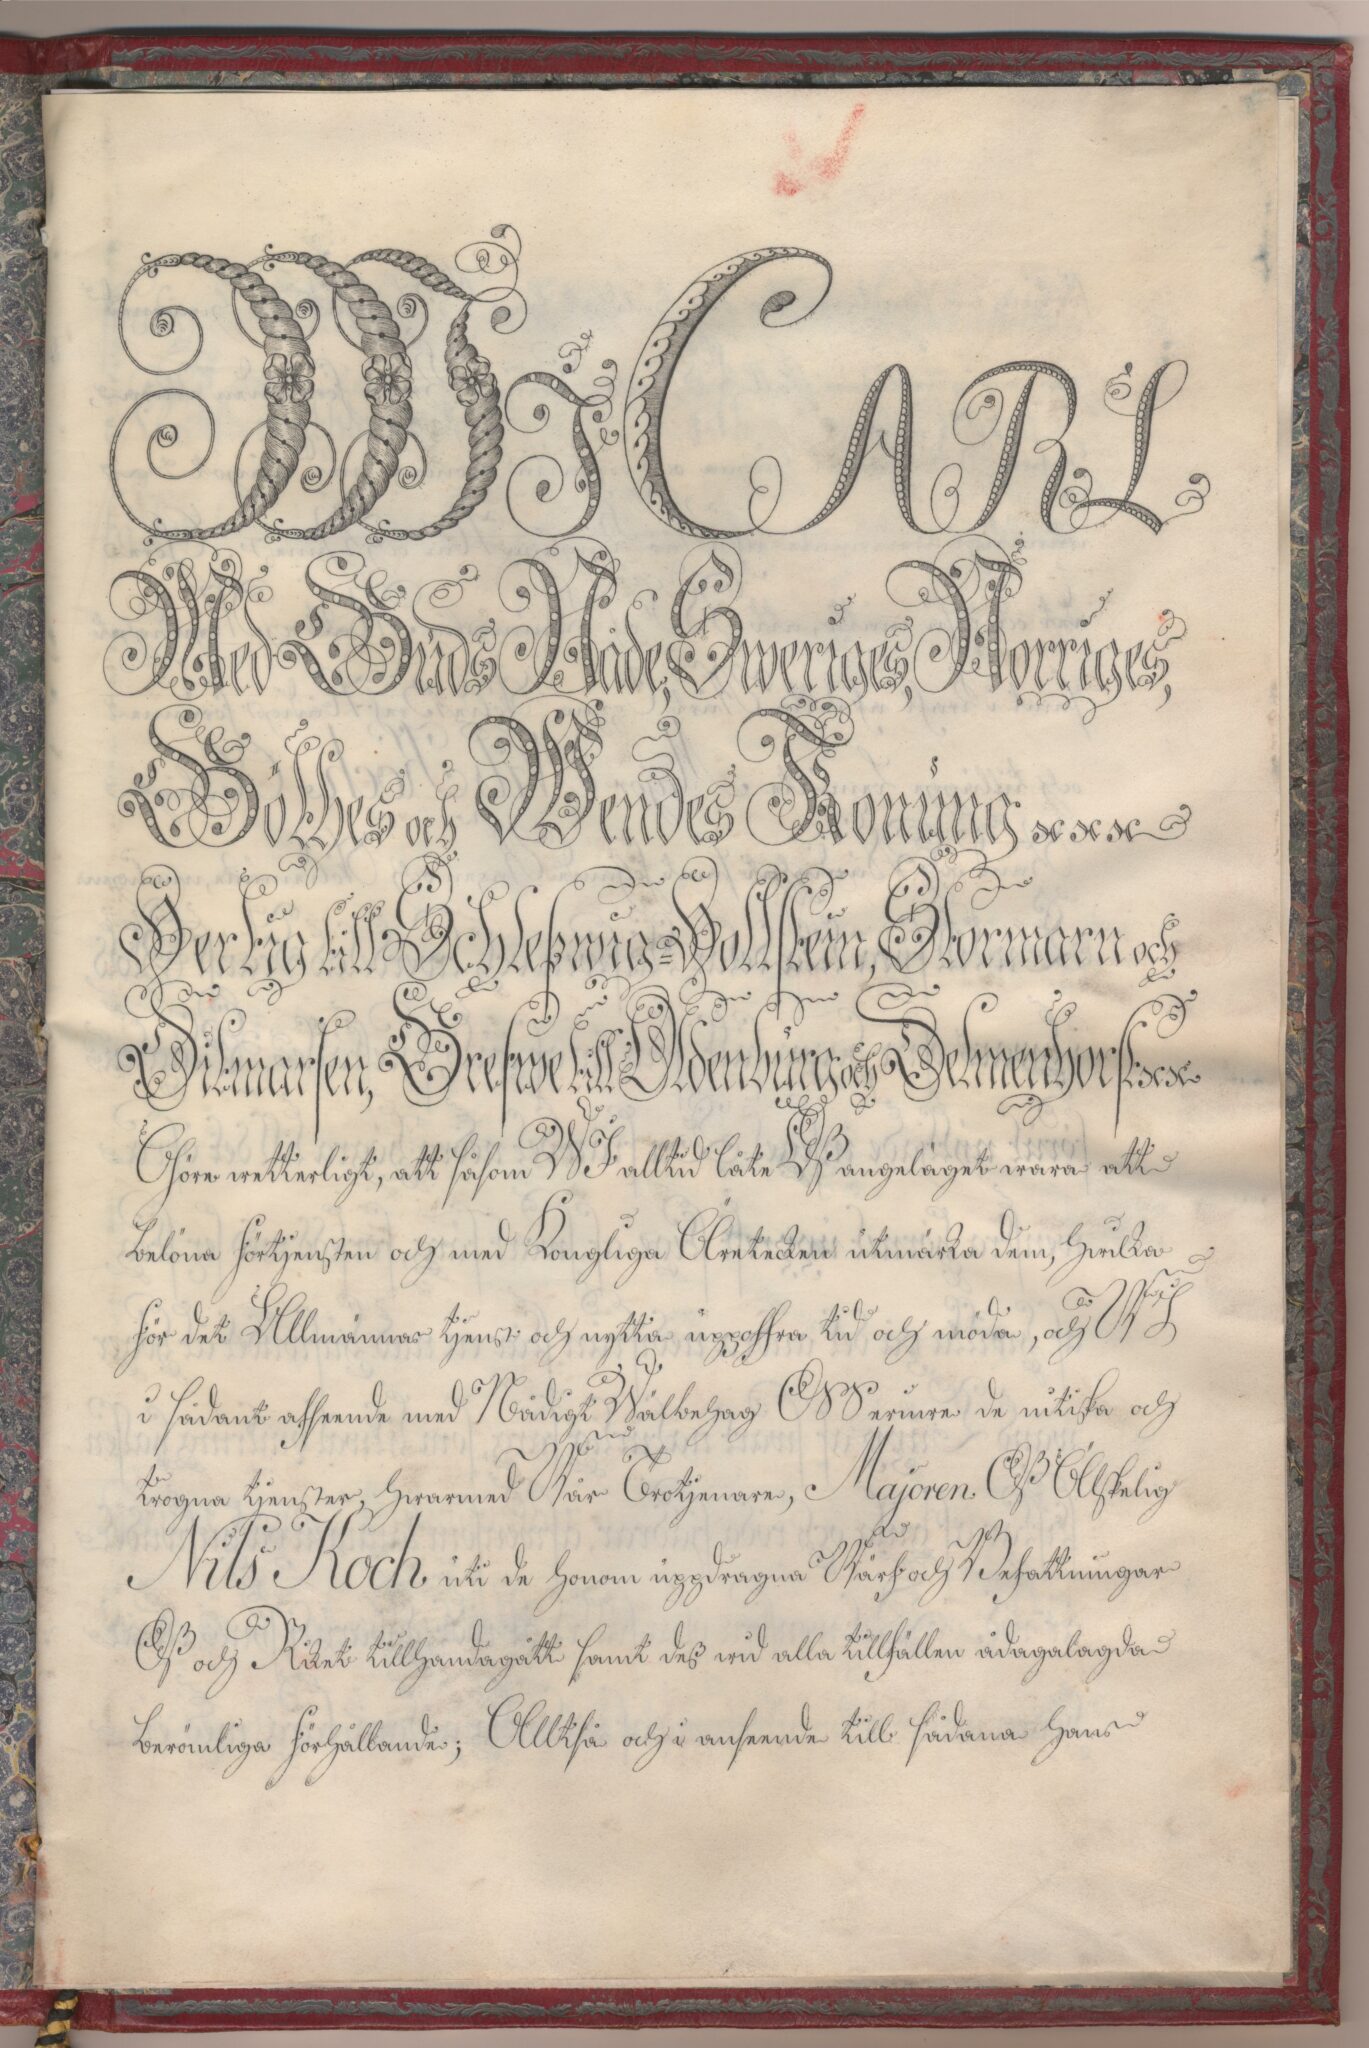 Wi CARL
Med Guds Nåde, Sweriges, Norriges,
Göthes och Wendes Konüng
Hertig till Schleßwig-Hollstein, Stormarn och
Ditmarsen, Grefwe till Oldenbürg och Delmenhorst
Göre wetterligt, att såsom WI alltid låte Oß angeläget wara att
belöna förtjensten och med Kongliga Äretecken utmärka dem, hwilka
för det Allmännas tjenst och nytta üppoffra tid och möda, och WI
i sådant afseende med Nådigt Wälbehag OSS erinre de nitiska och
trogna tjenster, hwarmed Wår Trotjenare, Majoren Oß Älskelig
Nils Koch uti de honom üppdragna Wärf och Befattningar
Oß och Riket tillhandagått samt deß wid alla tillfällen ådagalagda
berömliga förhållande; Alltså och i anseende till sådana hans